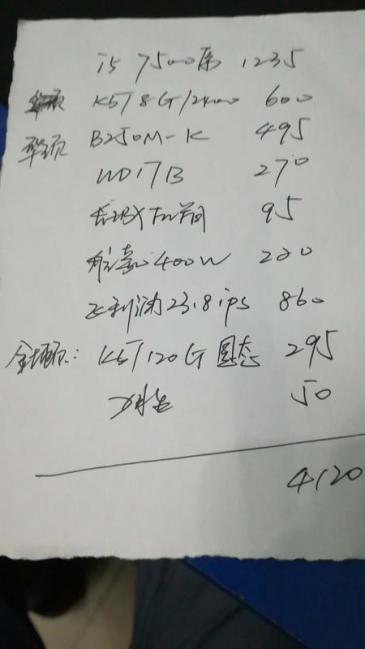 i5 7500原 1235
KST 8G/2400 600
华硕 B250M-K 495
WD 1TB 270
长城 95
航嘉 400W 220
飞利浦 23.8 ips 860
金士顿: KST 120G 固态 295
50
4120